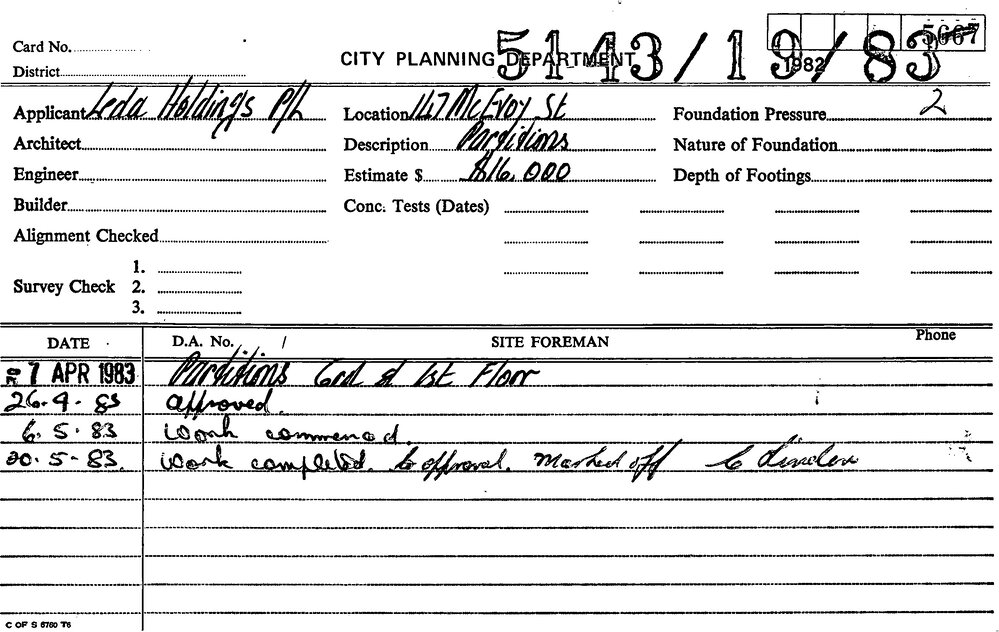 Card No.
5667
CITY PLANNING DEPARTMENT
5143/19/83
1982
District
Applicant Leda Holdings P/L
Location 147 McEvoy St
Foundation Pressure 2
Architect
Description Partitions
Nature of Foundation
Engineer
Estimate $ $16,000
Depth of Footings
Builder
Conc. Tests (Dates)
Alignment Checked
Survey Check 1.
2.
3.
DATE D.A. No. / SITE FOREMAN Phone
7 APR 1983 Partitions Grd & 1st Floor
26.4.83 approved.
6.5.83 Work commenced.
20.5.83. Work completed. to approval. Marked off
C OF S 6760 T6